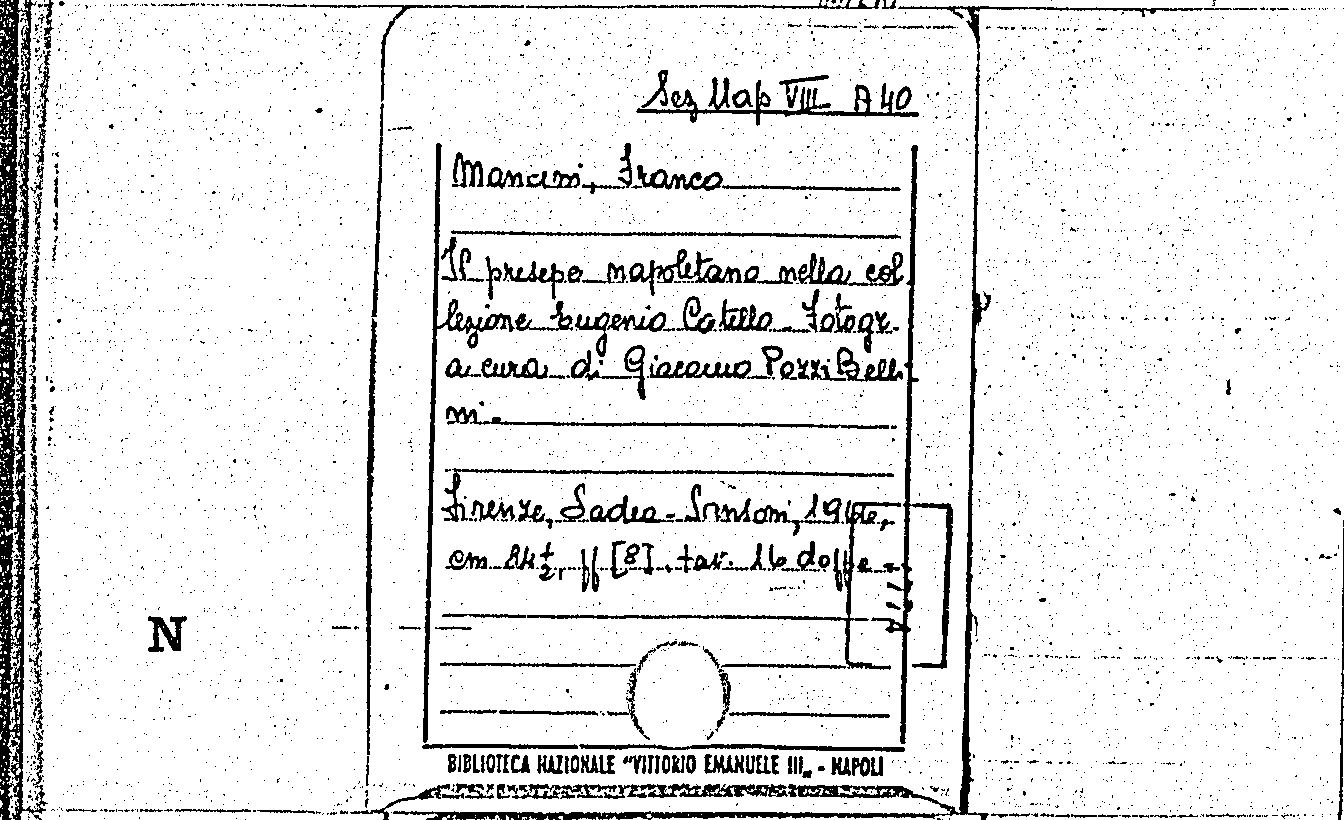 Sez Nap VIII A 40
Mancini, Franco
Il presepe napoletano nella col
lezione Eugenio Catello - Fotogr.
a cura di Giacomo Pozzi Belli
ni -
Firenze, Sadea - Sansoni,
cm 24 ½, ff [8]. tav. 16 doppie -
N
BIBLIOTECA NAZIONALE "VITTORIO EMANUELE III„ - NAPOLI